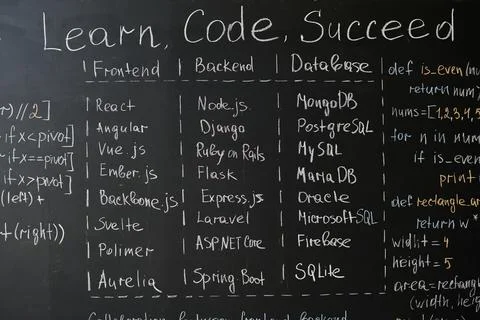 Learn, Code, Succeed
Frontend Backend Database
React Node.js MongoDB
Angular Django PostgreSQL
Vue.js Ruby on Rails MySQL
Ember.js Flask MariaDB
Backbone.js Express.js Oracle
Svelte Laravel Microsoft SQL
Polimer ASP.NET Core Firebase
Aurelia Spring Boot SQLite
r)//2]
if x<pivot]
if x==pivot]
if x>pivot]
(left) +
t(right))
def is_even(nu
return num
nums=[1,2,3,4,5
for n in num
if is_eve
print
def rectangle_ar
return w *
width = 4
height = 5
area=rectang
(width, he